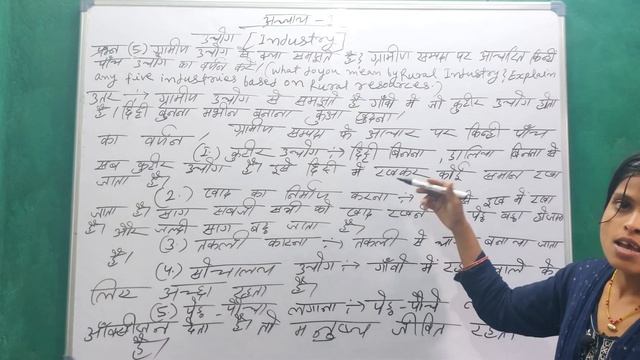 अध्याय - 1
उद्योग [Industry]
प्रश्न (5) ग्रामीण उद्योग से क्या समझते है? ग्रामीण सम्पदा पर आधारित किन्ही
पाँच उद्योग का वर्णन करे। (What do you mean by Rural Industry? Explain
any five industries based on Rural resources.)
उत्तर :-> ग्रामीण उद्योग से समझते है गाँवो में जो कुटीर उद्योग होता
है। बुनना मशीन बनाना
का वर्णन। ग्रामीण सम्पदा के आधार पर किन्ही पाँच
(1.) कुटीर उद्योग :-> बिनना, डालिया बिनना ये
सब कुटीर उद्योग है। इसे में रखकर कोई समान रखा
जाता है।
(2.) खाद का निर्माण करना :-> में रखा
जाता है। साग सब्जी सभी को खाद पेड़ बड़ा होजाता
है। और जल्दी साग बढ़ जाता है।
(3.) तकली कातना :-> तकली से बनाया जाता
है।
(4.) उद्योग :-> गाँवो में के
लिए अच्छा रहता है।
(5.) पेड़-पौधा लगाना :-> पेड़-पौधे
ऑक्सीजन देता है। तो मनुष्य जीवित रहता
है।